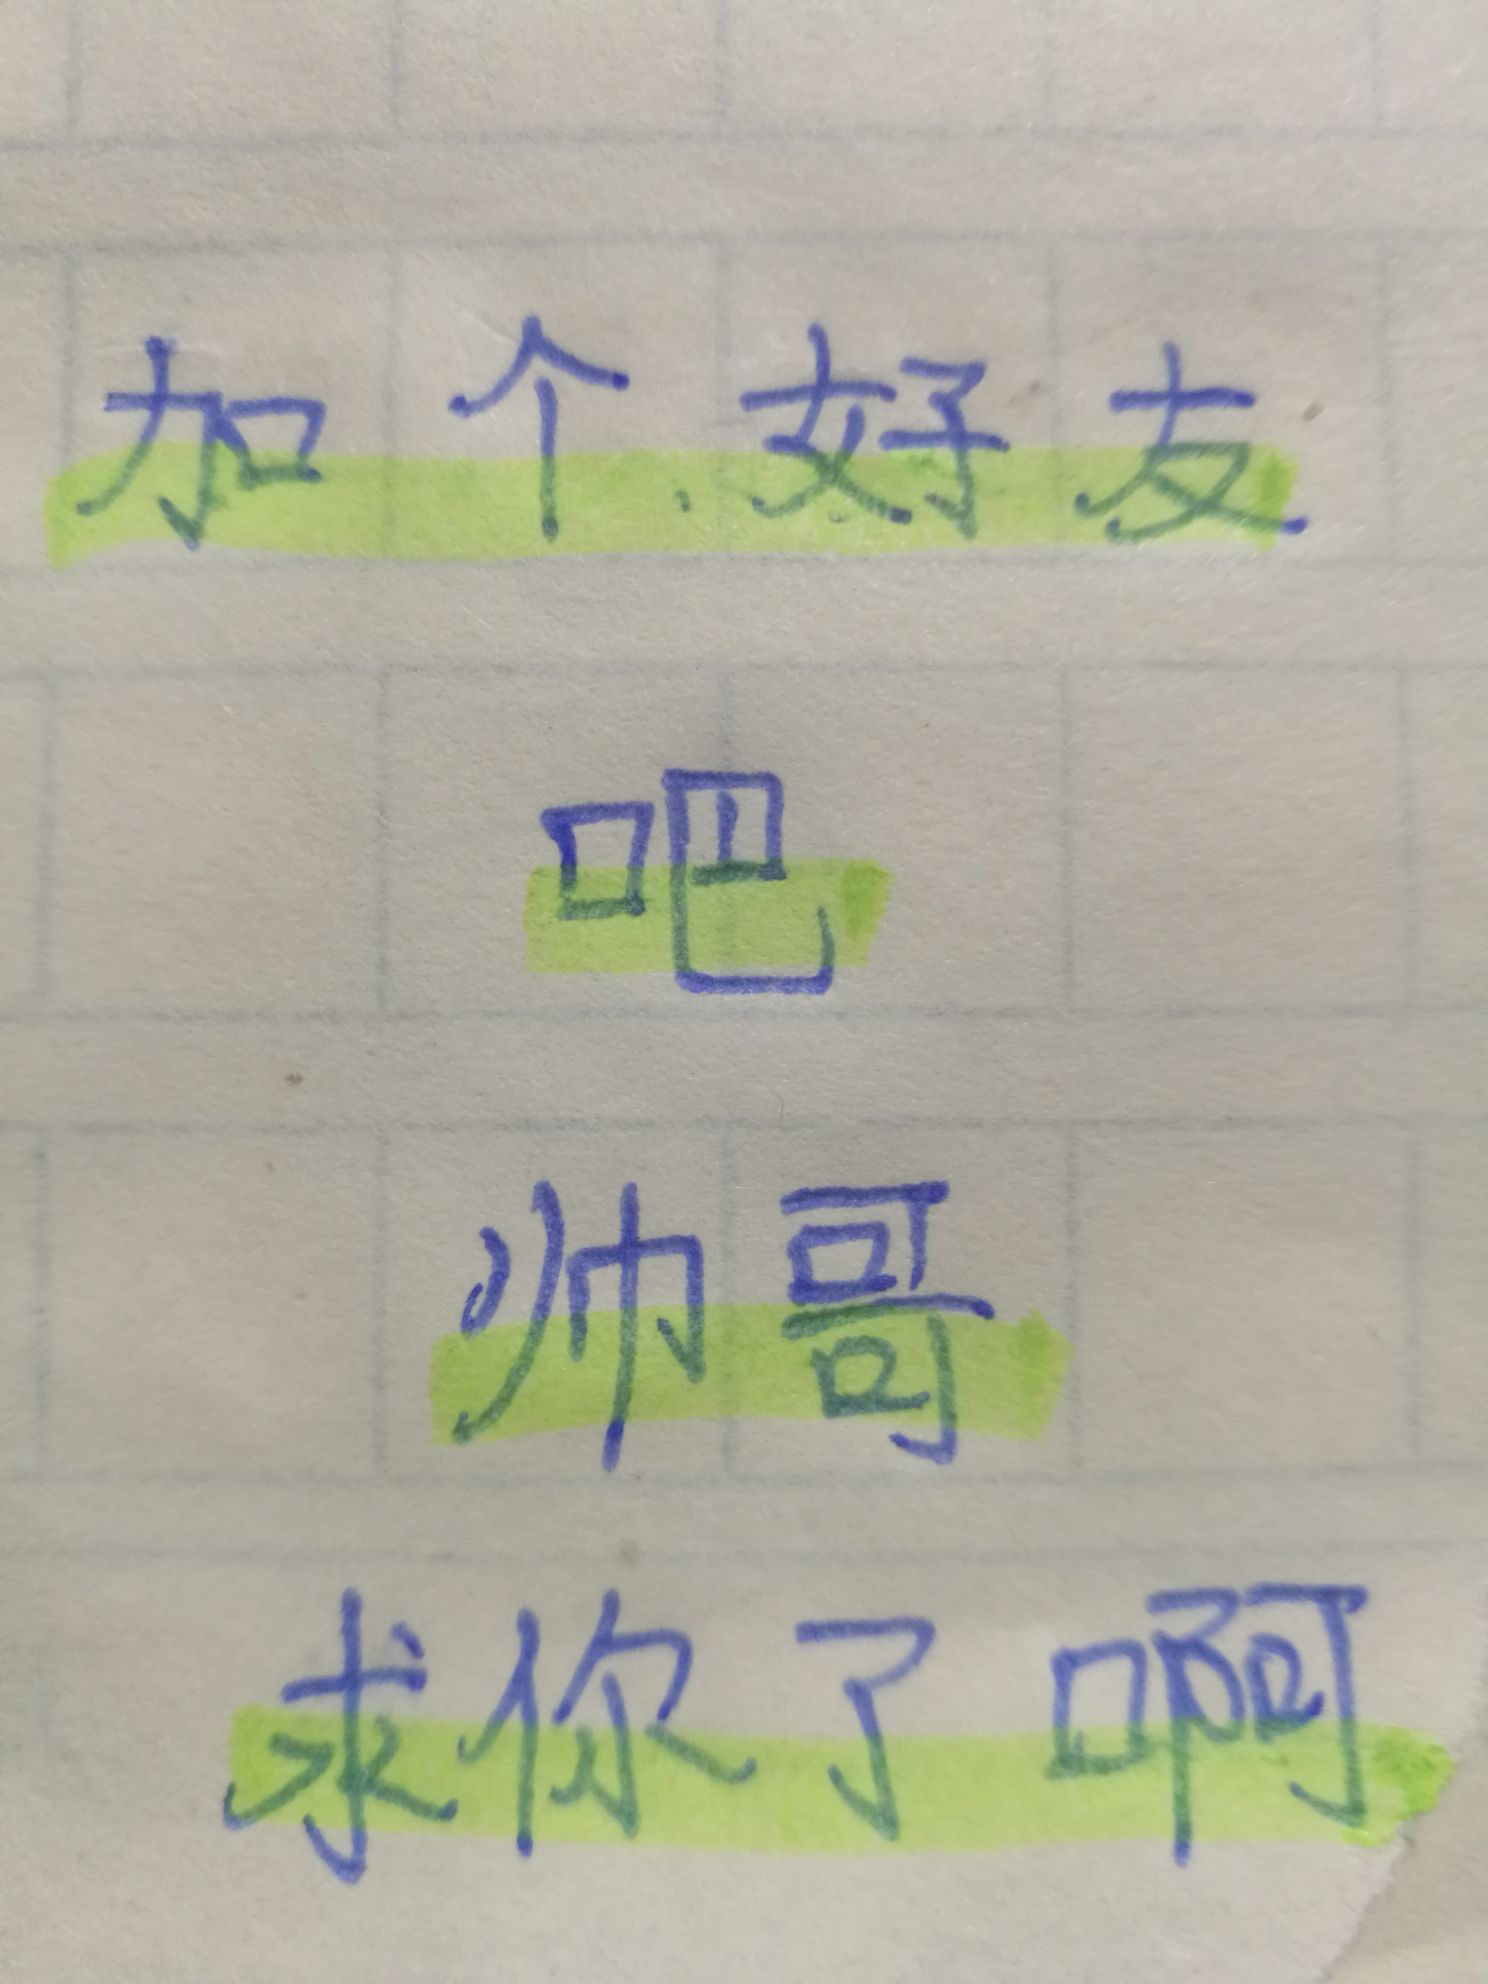 加个好友
吧
帅哥
求你了啊